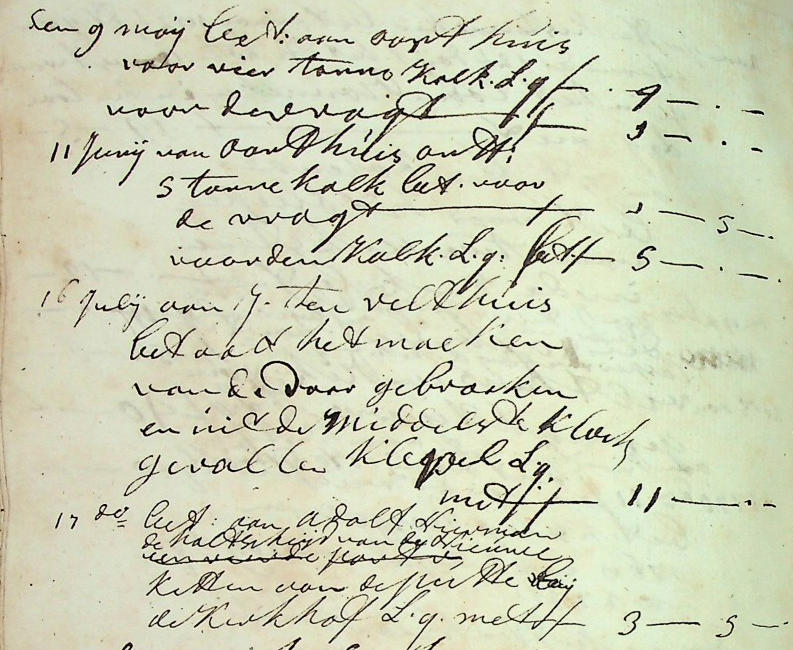 den 9 maij bet: aan oort huis
voor vier tonne kalk. L.q f 9 — . —
voor de vragt f 3 — . —
11 Junij van oorthuis ontf:
5 tonne kalk bet. voor
de vragt f 3 — 5 — .
voor den kalk. L.q: bet f 5 — . —
16 Julij aan J. ten velthuis
betaalt het maeken
van de door gebrooken
en uit de middelste klock
gevallen klepel L.q.
met f 11 — . .
17 do bet: aan adolf
de halfscheijd van de nieuwe
ketten van de poste baij
de kerkhof L.q. met f 3 — 5 — .